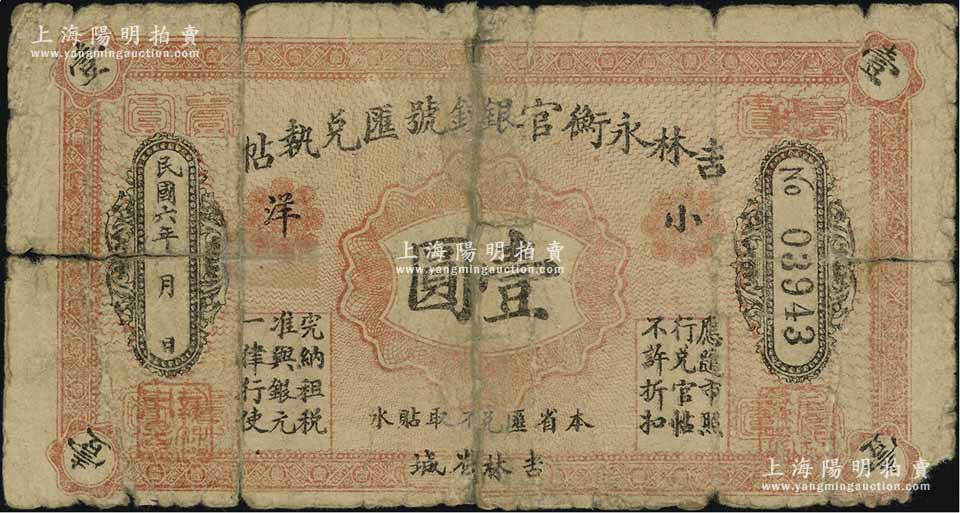 上海陽明拍賣
www.yangmingauction.com
壹
壹
吉林永衡官銀錢號匯兌執帖
小
洋
壹圓
No 03943
民國六年 月 日
應隨市照
行兌官帖
不許折扣
完納租稅
准與銀元
一律行使
本省匯兌不取貼水
吉林省城
上海陽明拍賣
www.yangmingauction.com
上海陽明拍賣
www.yangmingauction.com
壹
壹